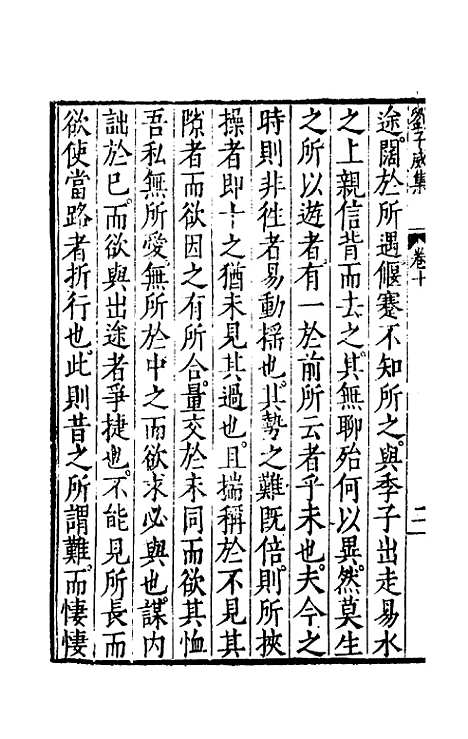 劉子威集 卷十 二
途闊於所遇偃蹇不知所之與季子出走易水
之上親信背而去之其無聊殆何以異然莫生
之所以遊者有一於前所云者乎未也夫今之
時則非徃者易動揺也其勢之難既倍則所挾
操者即十之猶未見其過也且揣稱於不見其
隙者而欲因之有所合量交於未同而欲其恤
吾私無所愛無所於中之而欲求必與也謀内
詘於已而欲與出途者爭捷也不能見所長而
欲使當路者折行也此則昔之所謂難而悽悽